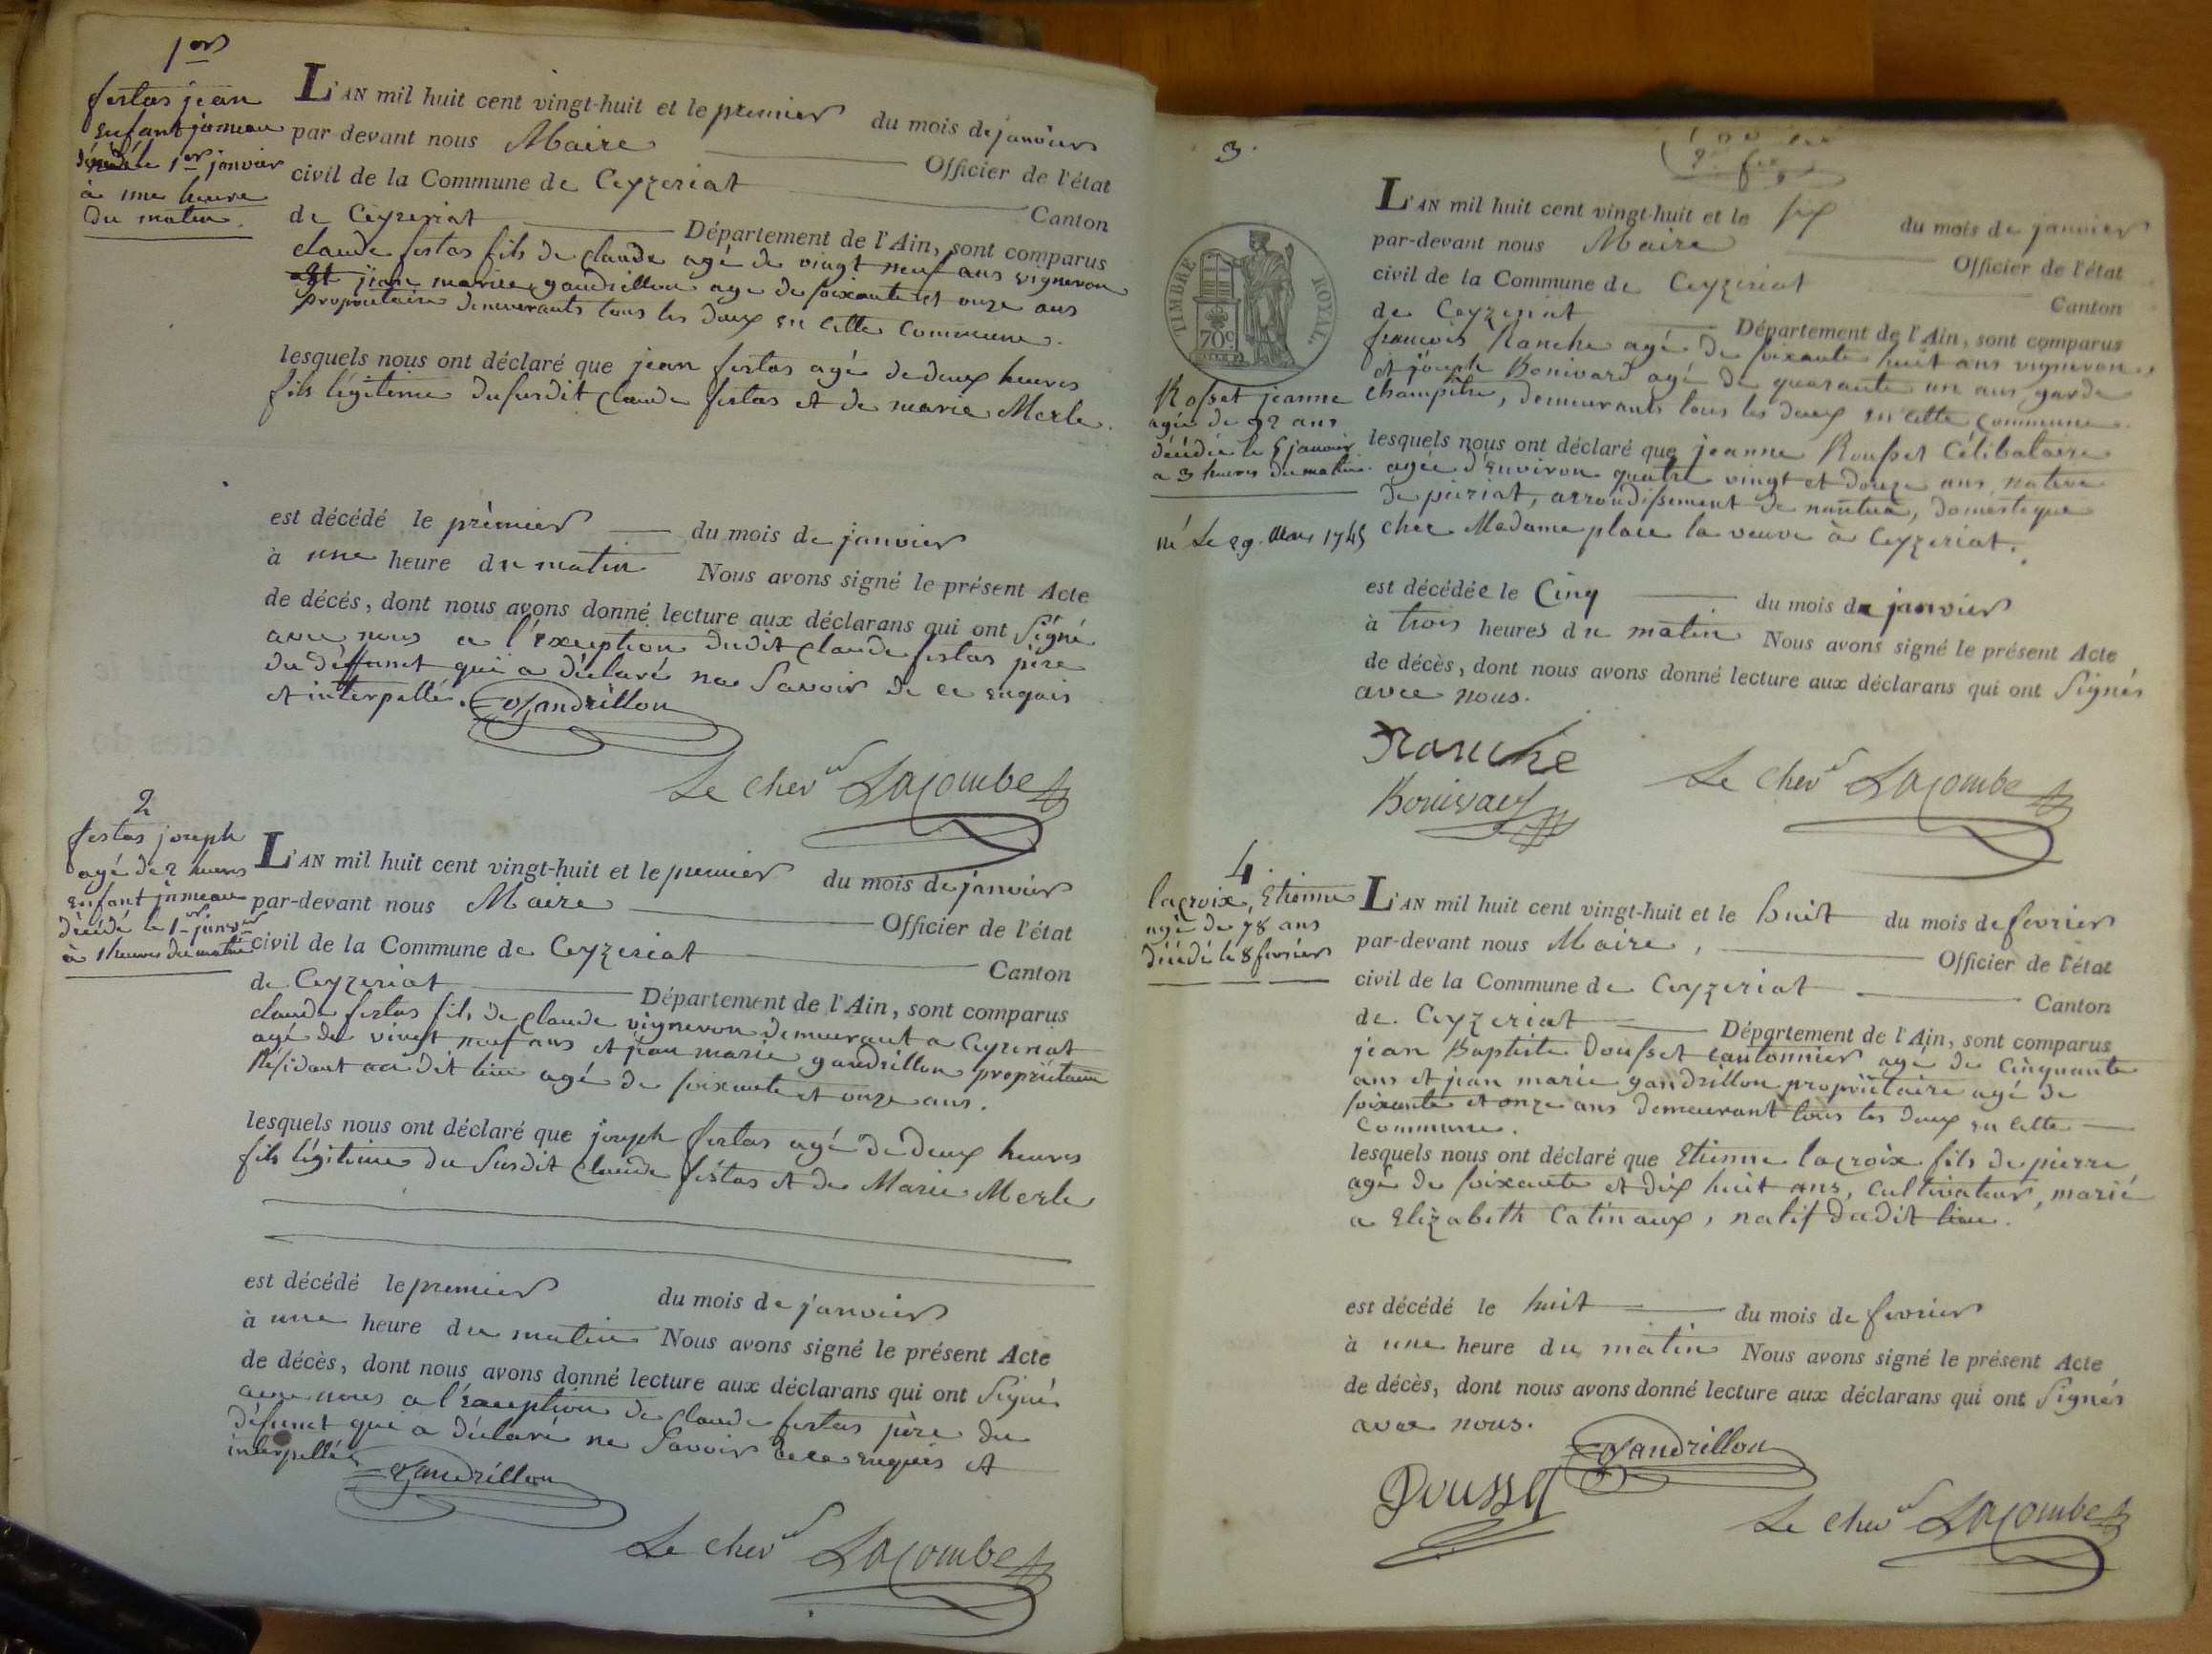 1er
festas jean
enfant jumeau
décédé le 1er janvier
à une heure
du matin.
L'AN mil huit cent vingt-huit et le premier du mois de janvier
par devant nous Maire Officier de l'état
civil de la Commune de Ceyzeriat Canton
de Ceyzeriat Département de l'Ain, sont comparus
claude festas fils de claude agé de vingt neuf ans vigneron
et jean marie gandrillon age de soixante et onze ans
propriétaire demeurants tous les deux en cette commune.
lesquels nous ont déclaré que jean festas agé de deux heures
fils légitime du susdit claude festas et de marie Merle.
est décédé le prémier du mois de janvier
à une heure du matin Nous avons signé le présent Acte
de décés, dont nous avons donné lecture aux déclarans qui ont Signé
avec nous a l'exception dudit claude festas père
du déffunct qui a déclaré ne Savoir de ce enquis
et interpellé. Gandrillon
Le Chev Lacombe
2
festas joseph
agé de 2 heures
enfant jumeau
décédé le 1er janvier
à 1 heure du matin
L'AN mil huit cent vingt-huit et le premier du mois de janvier
par-devant nous Maire Officier de l'état
civil de la Commune de Ceyzeriat Canton
de Ceyzeriat Département de l'Ain, sont comparus
claude festas fils de claude vigneron demeurant a Ceyzeriat
agé de vingt neuf ans et jean marie gandrillon propriétaire
Résidant au dit lieu agé de soixante et onze ans.
lesquels nous ont déclaré que joseph festas agé de deux heures
fils légitime du Susdit claude féstas et de Marie Merle
est décédé le premier du mois de janvier
à une heure du matin Nous avons signé le présent Acte
de décès, dont nous avons donné lecture aux déclarans qui ont Signé
avec nous a l'exception de claude festas père du
défunct qui a déclaré ne Savoir de ce enquis et
interpellé Gandrillon
Le Chev Lacombe
3.
TIMBRE ROYAL.
70c
Rosset jeanne
agée de 92 ans
décédée le 5 janvier
a 3 heures du matin.
né Le 29. Mars 1745
L'AN mil huit cent vingt-huit et le six du mois de janvier
par-devant nous Maire Officier de l'état
civil de la Commune de Ceyzeriat Canton
de Ceyzeriat Département de l'Ain, sont comparus
francois Ranche agé de soixante huit ans vigneron,
et joseph Bonivard agé de quarante un ans garde
champêtre, demeurants tous les deux en cette commune.
lesquels nous ont déclaré que jeanne Rousset Célibataire
agée d'environ quatre vingt et douze ans, native
de peiriat, arrondissement de nantua, domestique
chez Madame place la veuve à Ceyzeriat.
est décédée le Cinq du mois de janvier
à trois heures du matin Nous avons signé le présent Acte
de décès, dont nous avons donné lecture aux déclarans qui ont Signés
avec nous.
Ranche
Bonivard
Le Chev Lacombe
4.
lacroix, Etienne
agé de 78 ans
décédé le 8 fevrier
L'AN mil huit cent vingt-huit et le huit du mois de fevrier
par-devant nous Maire, Officier de l'état
civil de la Commune de Ceyzeriat Canton
de Ceyzeriat Département de l'Ain, sont comparus
jean Baptiste Dousset cantonnier agé de Cinquante
ans et jean marie gandrillon propriétaire agé de
soixante et onze ans demeurant tous les deux en cette
commune.
lesquels nous ont déclaré que Etienne lacroix fils de pierre
agé de soixante et dix huit ans, cultivateur, marié
a Elizabeth Catinaux, natif dudit lieu.
est décédé le huit du mois de fevrier
à une heure du matin Nous avons signé le présent Acte
de décès, dont nous avons donné lecture aux déclarans qui ont Signés
avec nous.
Gandrillon
Dousset
Le Chev Lacombe